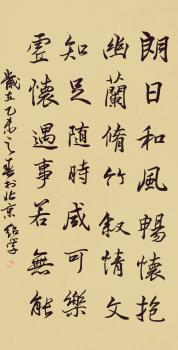 朗日和風暢懷抱
幽蘭脩竹敘情文
知足隨時咸可樂
虛懷遇事若無能
歲在乙未之春於北京